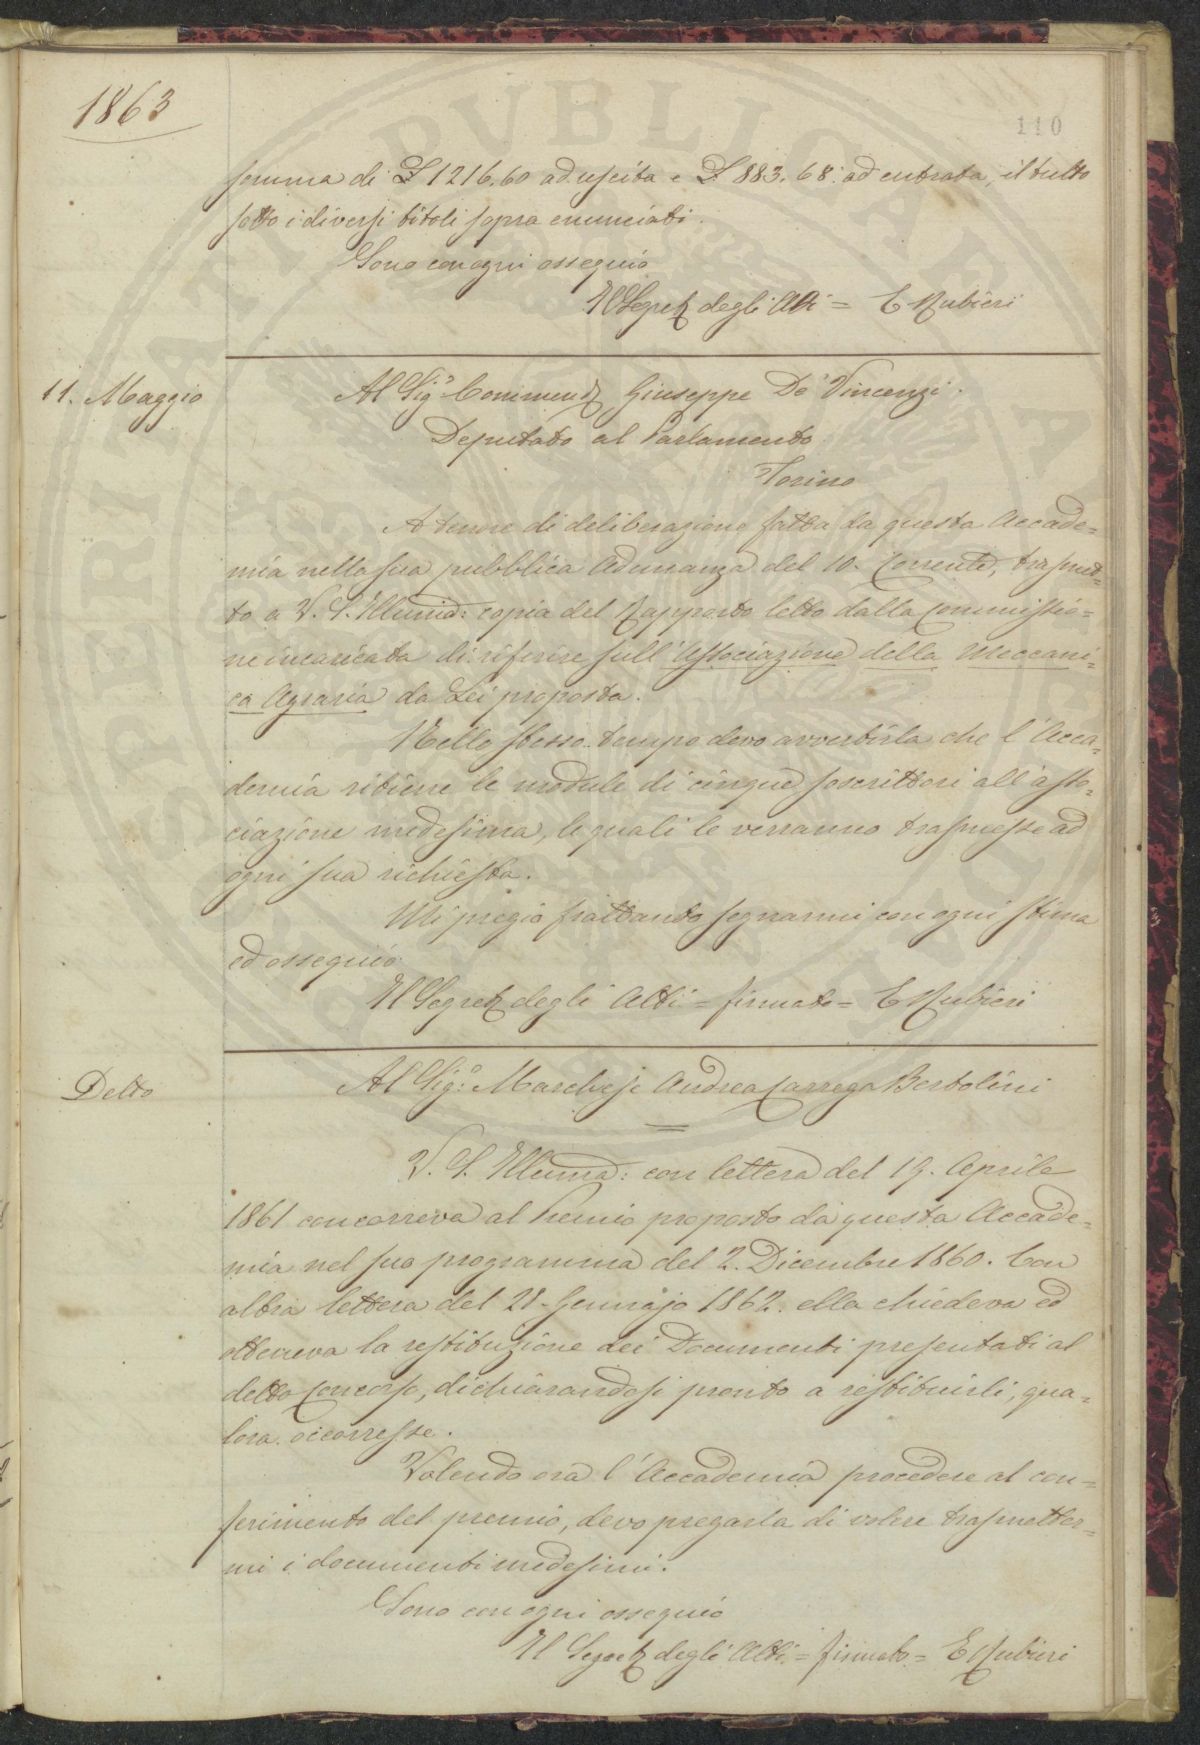 1863
110
somma di £ 1216,60 ad uscita e £ 883.68. ad entrata, il tutto
sotto i diversi titoli sopra enunciati.
Sono con ogni ossequio
Il Segret. degli Atti = E Rubieri
11. Maggio
Al Sigr Commend. Giuseppe De Vincenzi.
Deputato al Parlamento
Torino
A tenore di deliberazione fatta da questa Accade=
mia nella sua pubblica Adunanza del 10. Corrente, trasmet=
to a V. S. Illuma: copia del Rapporto letto dalla Commissio=
ne incaricata di riferire sull'Associazione della Meccani=
ca Agraria da Lei proposta.
Nello stesso tempo devo avvertirla che l'Acca=
demia ritiene le module di cinque soscrittori all'asso=
ciazione medesima, le quali le verranno trasmesse ad
ogni sua richiesta.
Mi pregio frattanto segnarmi con ogni stima
ed ossequio
Il Segret. degli Atti = firmato = E Rubieri
Detto
Al Sigr: Marchese Andrea Carrega Bertolini
V. S. Illuma: con lettera del 19. Aprile
1861 concorreva al Premio proposto da questa Accade=
mia nel suo programma del 2. Dicembre 1860. Con
altra lettera del 21. Gennajo 1862. ella chiedeva ed
otteneva la restituzione dei Documenti presentati al
detto Concorso, dichiarandosi pronto a restituirli, qua=
lora occorresse.
Volendo ora l'Accademia procedere al con=
ferimento del premio, devo pregarla di volere trasmetter=
mi i documenti medesimi.
Sono con ogni ossequio
Il Segret. degli Atti = firmato = E Rubieri